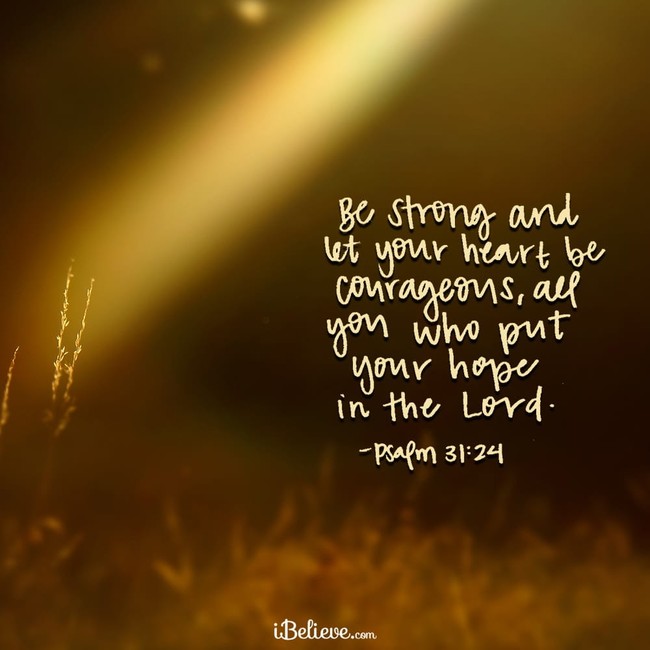 Be strong and
let your heart be
courageous, all
you who put
your hope
in the Lord.
-Psalm 31:24
iBelieve.com